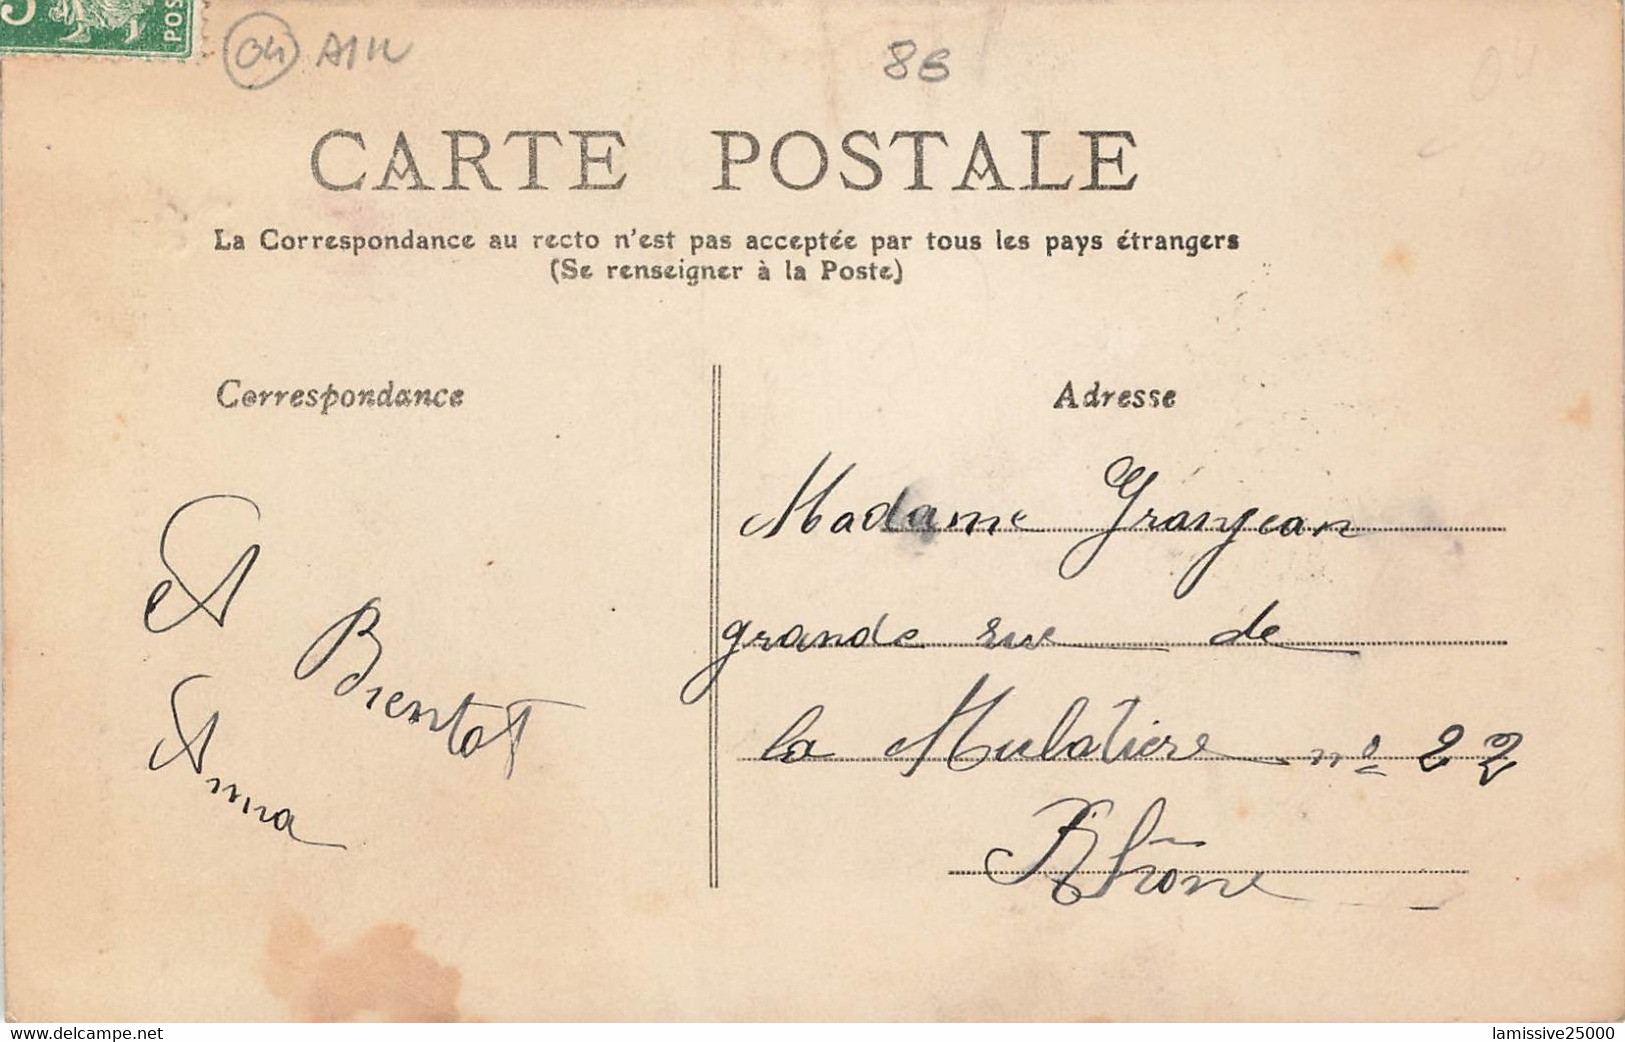 5
POS
04 AIN
8B
04
CARTE POSTALE
La Correspondance au recto n'est pas acceptée par tous les pays étrangers
(Se renseigner à la Poste)
Correspondance
Adresse
A
Bientot
Anna
Madame Granjean
grande rue de
la Mulatiere nº 22
Rhône
www.delcampe.net
lamissive25000